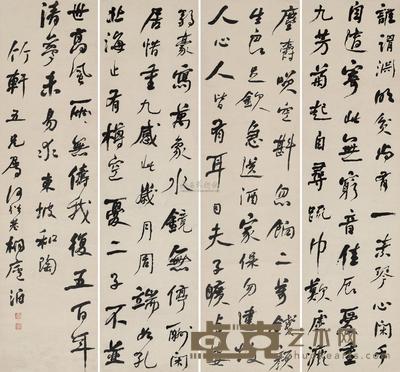 誰謂淵明貧尚有一素琴心閑手
自適寄此無窮音佳辰愛重
九芳菊起自尋疏巾歎虛漉
塵爵咲空斟忽餉二萬錢顏
生良足欽急送酒家保勿違故
人心人皆有耳目夫子曠與婁
弱豪寫萬象水鏡無停酬閑
居惜重九感此歲月周端如孔
北海止有樽空憂二子不並
世高風兩無儔我後五百年
清夢未易求東坡和陶
竹軒五兄屬何紹基桐廬泊